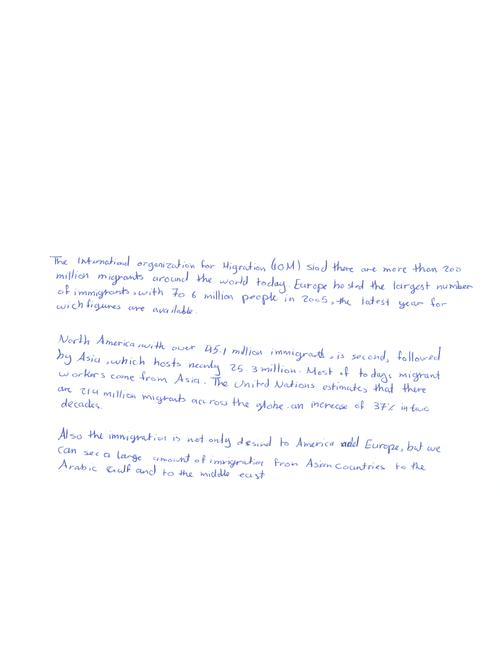 The International organization for Migration (IOM) siad there are more than 200
million migrants around the world today. Europe hosted the largest number
of immigrants, with 70 6 million people in 2005, the latest year for
wich figures are available.
North America, with over 45.1 million immigrants, is second, followed
by Asia, which hosts nearly 25.3 million. Most of todays migrant
workers come from Asia. The United Nations estimates that there
are 214 million migrants across the globe. an increase of 37% in two
decades.
Also the immigration is not only desired to America and Europe, but we
can see a large amount of immigration from Asian countries to the
Arabic Gulf and to the middle east